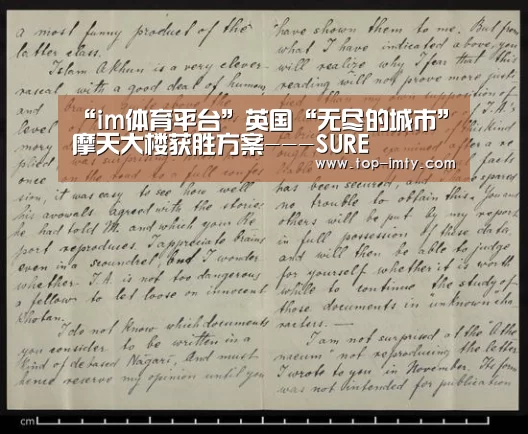 a most funny product of the
latter class.
Islam Akhun is a very clever
rascal, with a good deal of humour
and
level of
more
plied was surprising
once on the road to a full confes-
sion, it was easy to see how well
his avowals agreed with the stories
he had told M. and which your Re-
port reproduces. I appreciate brains
even in a scoundrel and I wonder
whether I.A. is not too dangerous
a fellow to let loose on innocent
Khotan.
I do not know which documents
you consider to be written in a
kind of debased Nāgarī, and must
hence reserve my opinion until you
have shown them to me. But from
what I have indicated above, you
will realize why I fear that this
reading will not prove more justi-
fied than my own supposition of
I.A.'s
of this kind
examined after a
facts
has been secured, and I have spared
no trouble to obtain this. You and
others will be put by my report
in full possession of these data,
and will then be able to judge
for yourself whether it is worth
while to continue the study of
those documents in "unknown cha-
racters. —
I am not surprised at the "Athe-
naeum" not reproducing the letter
I wrote to you in November. Its form
was not intended for publication
“im体育平台”英国“无尽的城市”
摩天大楼获胜方案———SURE
www.top-imty.com
cm